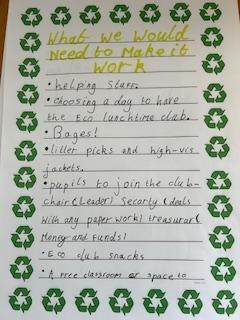 What We Would
Need to Make it
Work
• helping Staff.
• Choosing a day to have
the Eco lunchtime club.
• Bages!
• litter picks and high-vis
jackets.
• pupils to join the club-
chair (Leader) Secarty (deals
With any paper work) treasurar (
Money and Funds)
• Eco club snacks
• A free classroom or space to